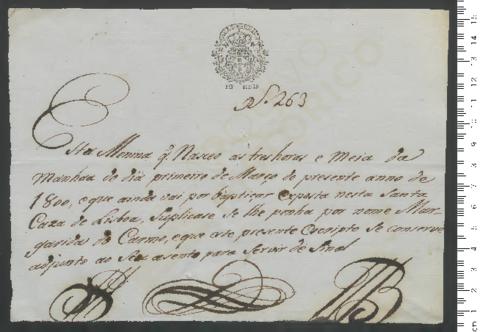 Nº. 263
Esta Menina q. Nasceo as tres horas e Meia da
manhaã do dia primeiro de Março do presente anno de
1800, e que ainda vai por bauptizar exposta nesta Santa
Caza de Lisboa, Suplicase se lhe ponha por nome Mar-
garida do Carmo, e que este presente Escripto se conserve
adjunto ao Seu acento para Servir de Sinal